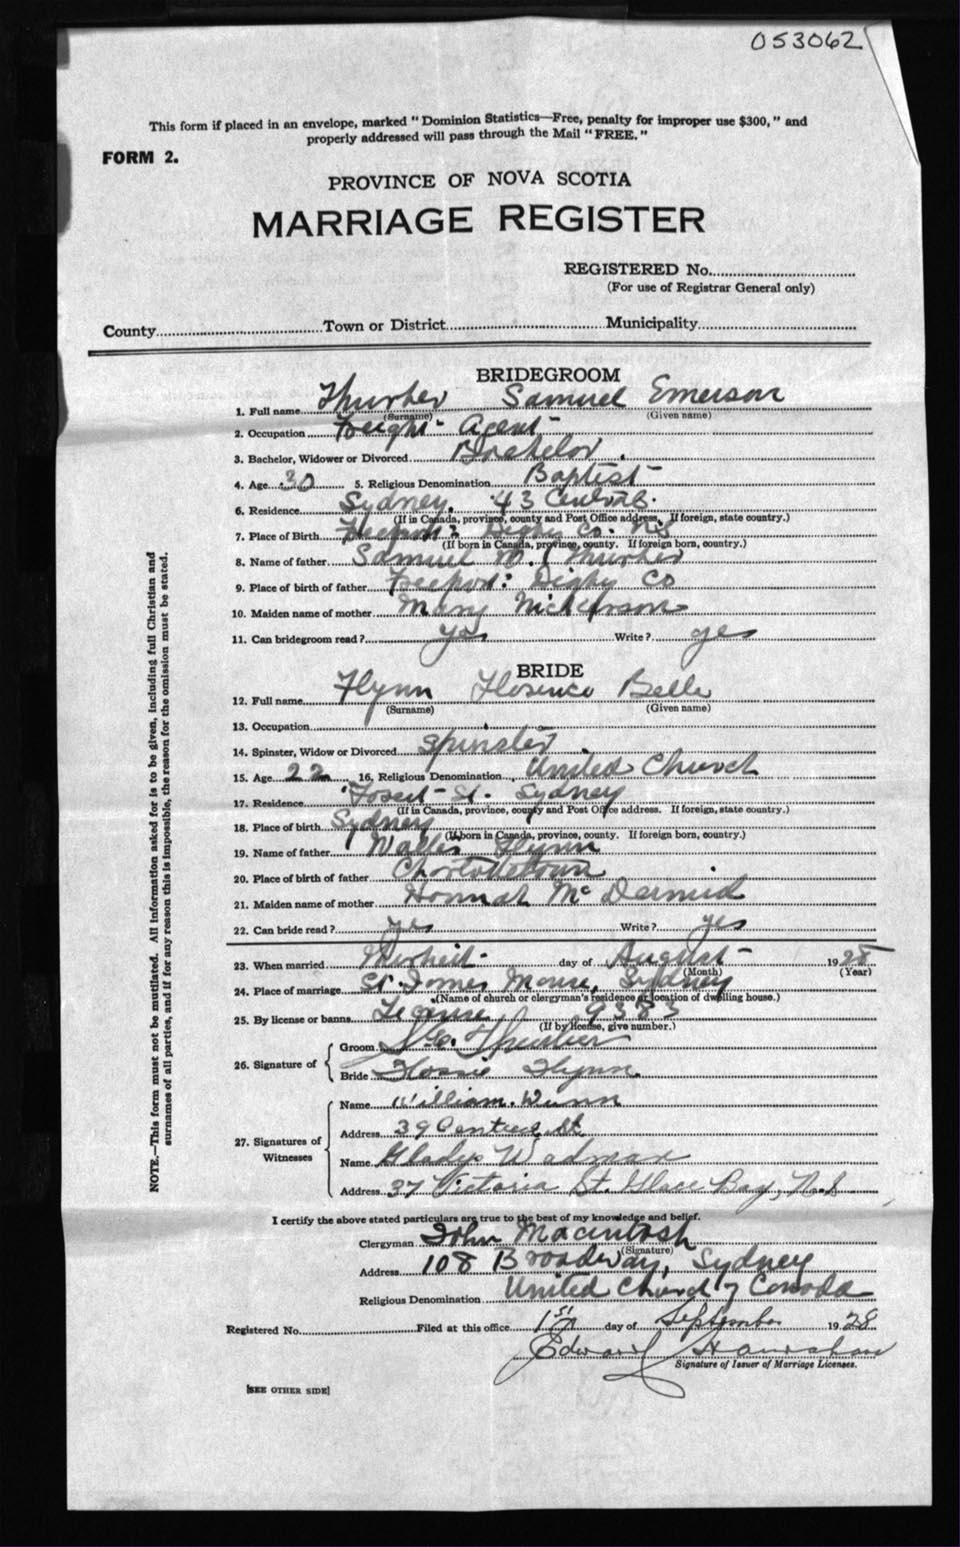 053062
This form if placed in an envelope, marked "Dominion Statistics—Free, penalty for improper use $300," and
properly addressed will pass through the Mail "FREE."
FORM 2.
PROVINCE OF NOVA SCOTIA
MARRIAGE REGISTER
REGISTERED No.
(For use of Registrar General only)
County Town or District Municipality
BRIDEGROOM
1. Full name Thurber Samuel Emerson
(Surname) (Given name)
2. Occupation Freight Agent
3. Bachelor, Widower or Divorced Bachelor
4. Age 30 5. Religious Denomination Baptist
6. Residence Sydney, 43 Central
(If in Canada, province, county and Post Office address. If foreign, state country.)
7. Place of Birth Freeport Digby Co. NS
(If born in Canada, province, county. If foreign born, country.)
8. Name of father Samuel M. Thurber
9. Place of birth of father Freeport Digby Co
10. Maiden name of mother Mary Nickerson
11. Can bridegroom read? yes Write? yes
BRIDE
12. Full name Flynn Florence Belle
(Surname) (Given name)
13. Occupation
14. Spinster, Widow or Divorced Spinster
15. Age 22 16. Religious Denomination United Church
17. Residence St. Sydney
(If in Canada, province, county and Post Office address. If foreign, state country.)
18. Place of birth Sydney
(If born in Canada, province, county. If foreign born, country.)
19. Name of father Walter Flynn
20. Place of birth of father Charlottetown
21. Maiden name of mother Hannah McDermid
22. Can bride read? yes Write? yes
23. When married day of August 1928
(Month) (Year)
24. Place of marriage St. James Manse, Sydney
(Name of church or clergyman's residence or location of dwelling house.)
25. By license or banns License 9383
(If by license, give number.)
26. Signature of
Groom S. E. Thurber
Bride Flossie Flynn
27. Signatures of Witnesses
Name William Wunn
Address 39 Central St
Name Gladys Wadman
Address 37 Victoria St. Glace Bay, N.S.
I certify the above stated particulars are true to the best of my knowledge and belief.
Clergyman John Macintosh
(Signature)
Address 108 Broadway, Sydney
Religious Denomination United Church of Canada
Registered No. Filed at this office 1st day of September 1928
Edward
Signature of Issuer of Marriage Licenses.
[SEE OTHER SIDE]
NOTE.—This form must not be mutilated. All information asked for is to be given, including full Christian and
surnames of all parties, and if for any reason this is impossible, the reason for the omission must be stated.